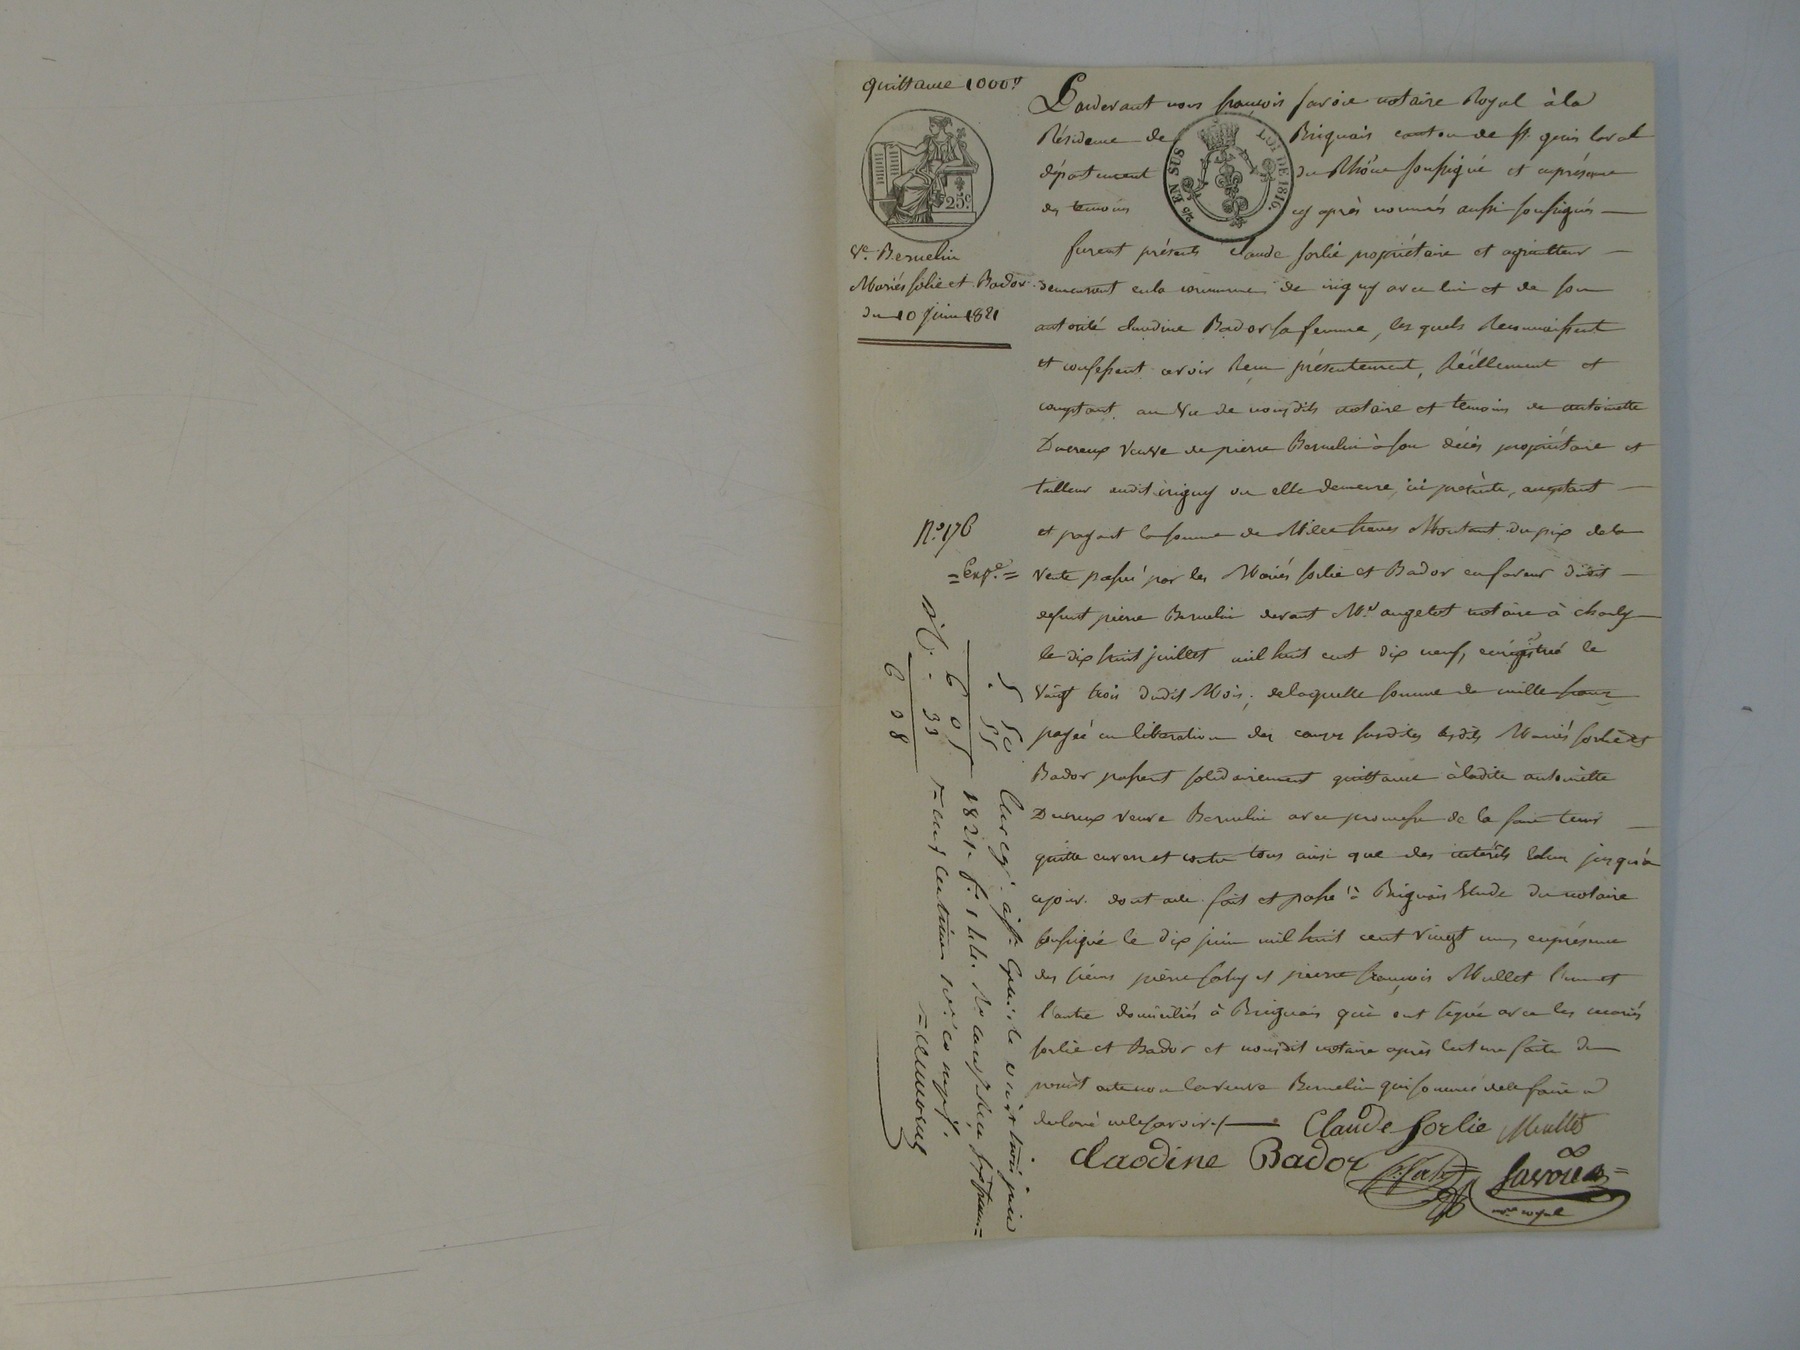 quittance 1000.f
25.c
Ve. Bernelin
Mariés Sorlie et Bador
du 10 Juin 1821
N.o 176
= Exp.e =
Pardevant nous françois Savoie notaire Royal à la
Résidence de Brignais canton de St. genis Laval
département du Rhône soussigné et en présence
des temoins cy après nommés aussi soussignés
2/10 EN SUS LOI DE 1816.
furent présents claude Sorlie propriétaire et agriculteur
demeurant en la commune de irigny avec lui et de son
autorité claudine Bador sa femme, les quels Reconnaissent
et confessent avoir Reçu présentement, Réellement et
comptant au Vu de nousdits notaire et temoins de antoinette
Ducreux Veuve de pierre Bernelin à son décès propriétaire et
tailleur audit irigny ou elle demeure, ici présente, acceptant
et payant la somme de Mille francs Montant du prix de la
Vente passée par les Mariés Sorlie et Bador en faveur dudit
defunt pierre Bernelin devant M.e angelot notaire à charly
le dix huit juillet mil huit cent dix neuf, enregistré le
Vingt trois dudit Mois; de laquelle somme de mille francs
payée en libération des causes susdites lesdits Mariés Sorlie et
Bador passent solidairement quittance à ladite antoinette
Ducreux veuve Bernelin avec promesse de la faire tenir
quitte envers et contre tous ainsi que des intérêts échus jusqu'à
cejour. dont acte fait et passé à Brignais Etude du notaire
soussigné le dix juin mil huit cent vingt un, en présence
des sieurs pierre Soly et pierre françois Mullet l'un et
l'autre domiciliés à Brignais qui ont signé avec les mariés
Sorlie et Bador et nousdit notaire après lecture faite du
présent acte non la veuve Bernelin qui sommée de le faire a
declaré ne le savoir ./.
Claude Sorlie Mullet
claodine Bador
Savoie
n.re royal
5 50
. 55
6 05
D.t . 33
6 38
Enreg. à St. Genis le vingt trois juin
1821. f. 144.